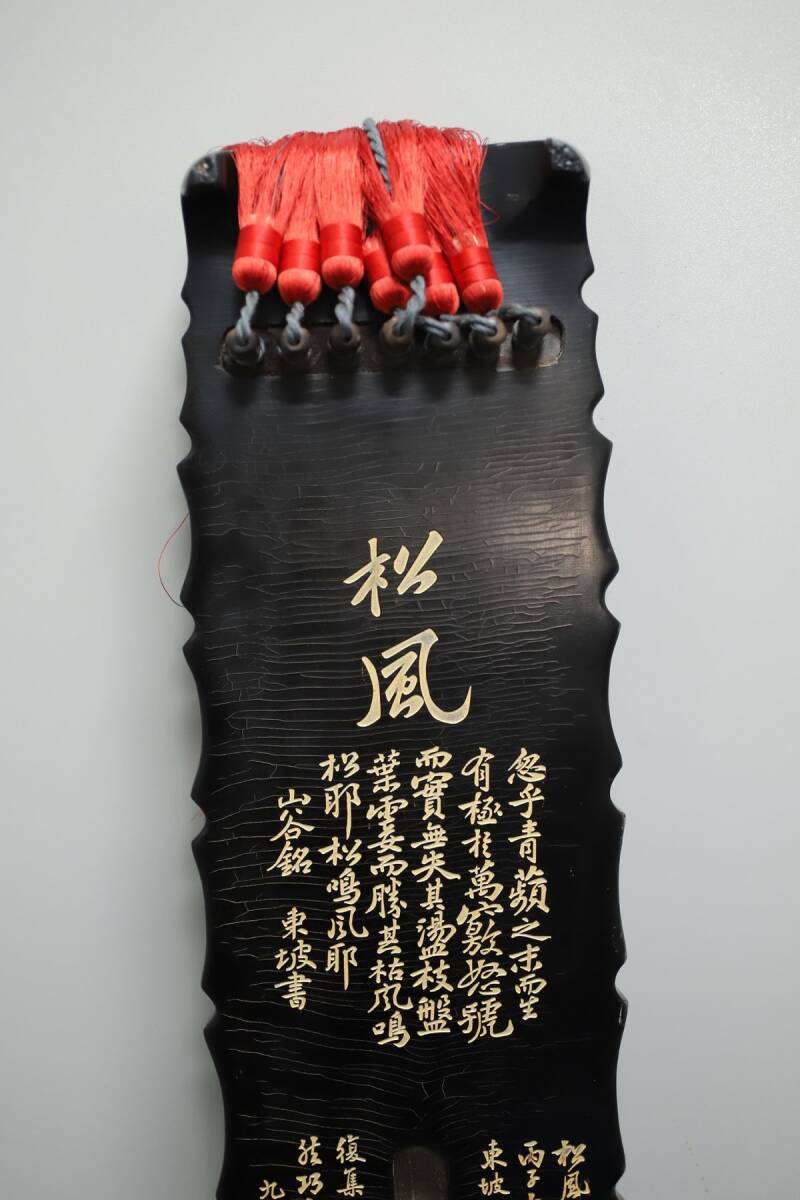 松風
忽乎青蘋之末而生
有極於萬竅怒號
而實無失其盪枝盤
葉霎而勝其枯風鳴
松耶松鳴風耶
山谷銘 東坡書
松風
丙子
東坡
復集
然巧
九